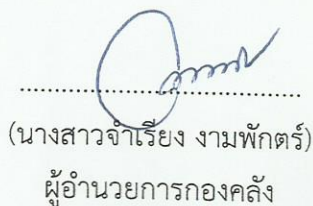 (นางสาวจำเรียง งามพักตร์)
ผู้อำนวยการกองคลัง